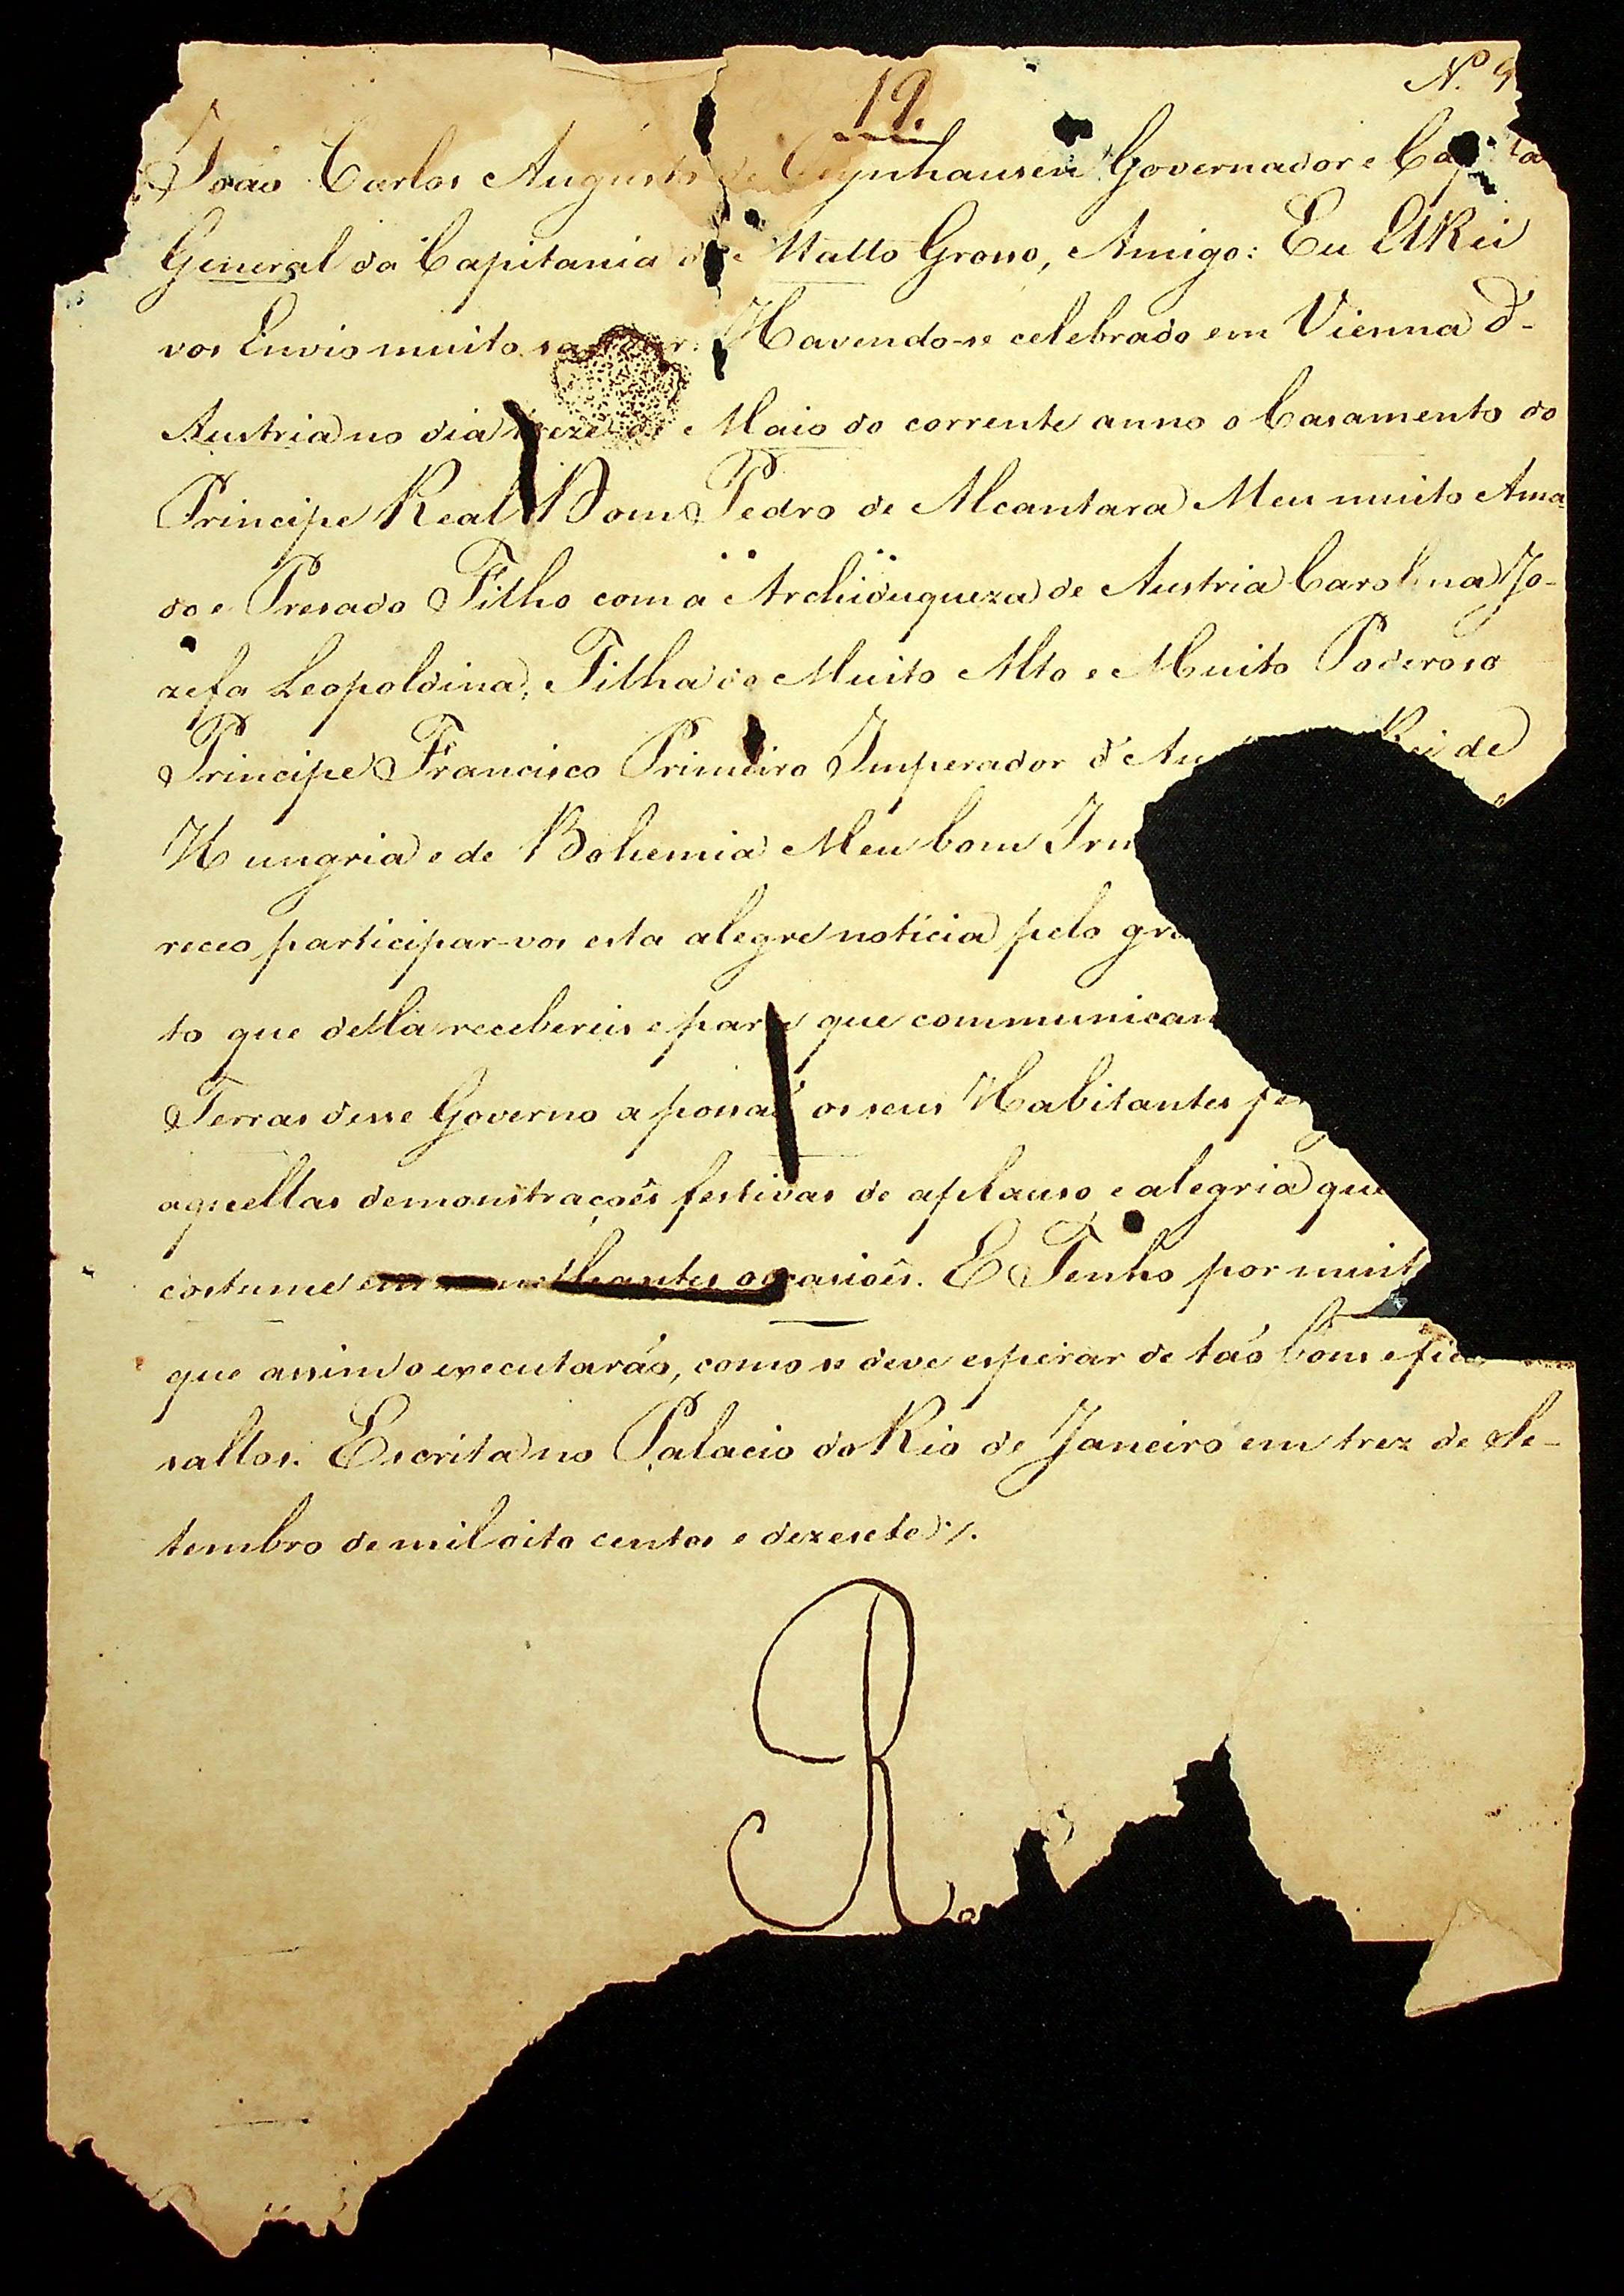 N.º 9
19.
João Carlos Augusto de Oeynhausen Governador e Capitão
General da Capitania de Matto Grosso, Amigo: Eu ElRei
vos Envio muito saudar. Havendo-se celebrado em Vienna d'-
Austria no dia treze de Maio do corrente anno o Casamento do
Principe Real Dom Pedro de Alcantara Meu muito Ama-
do e Presado Filho com a Archiduqueza de Austria Carolina Jo-
zefa Leopoldina, Filha do Muito Alto e Muito Poderoso
Principe Francisco Primeiro Imperador d'Au Rei de
Hungria e de Bohemia Meu bom Irm
receo participar-vos esta alegre noticia pelo gr
to que della recebereis e para que communican
Terras desse Governo a possaõ os seus Habitantes
aquellas demonstraçoẽs festivas de aplauso e alegria que
costume em semelhantes occasioẽs. E Tenho por muit
que assim o executaráõ, como se deve esperar de taõ bons e fieis
sallos. Escrita no Palacio do Rio de Janeiro em trez de Se-
tembro de mil oito centos e dezesete ·/.
R